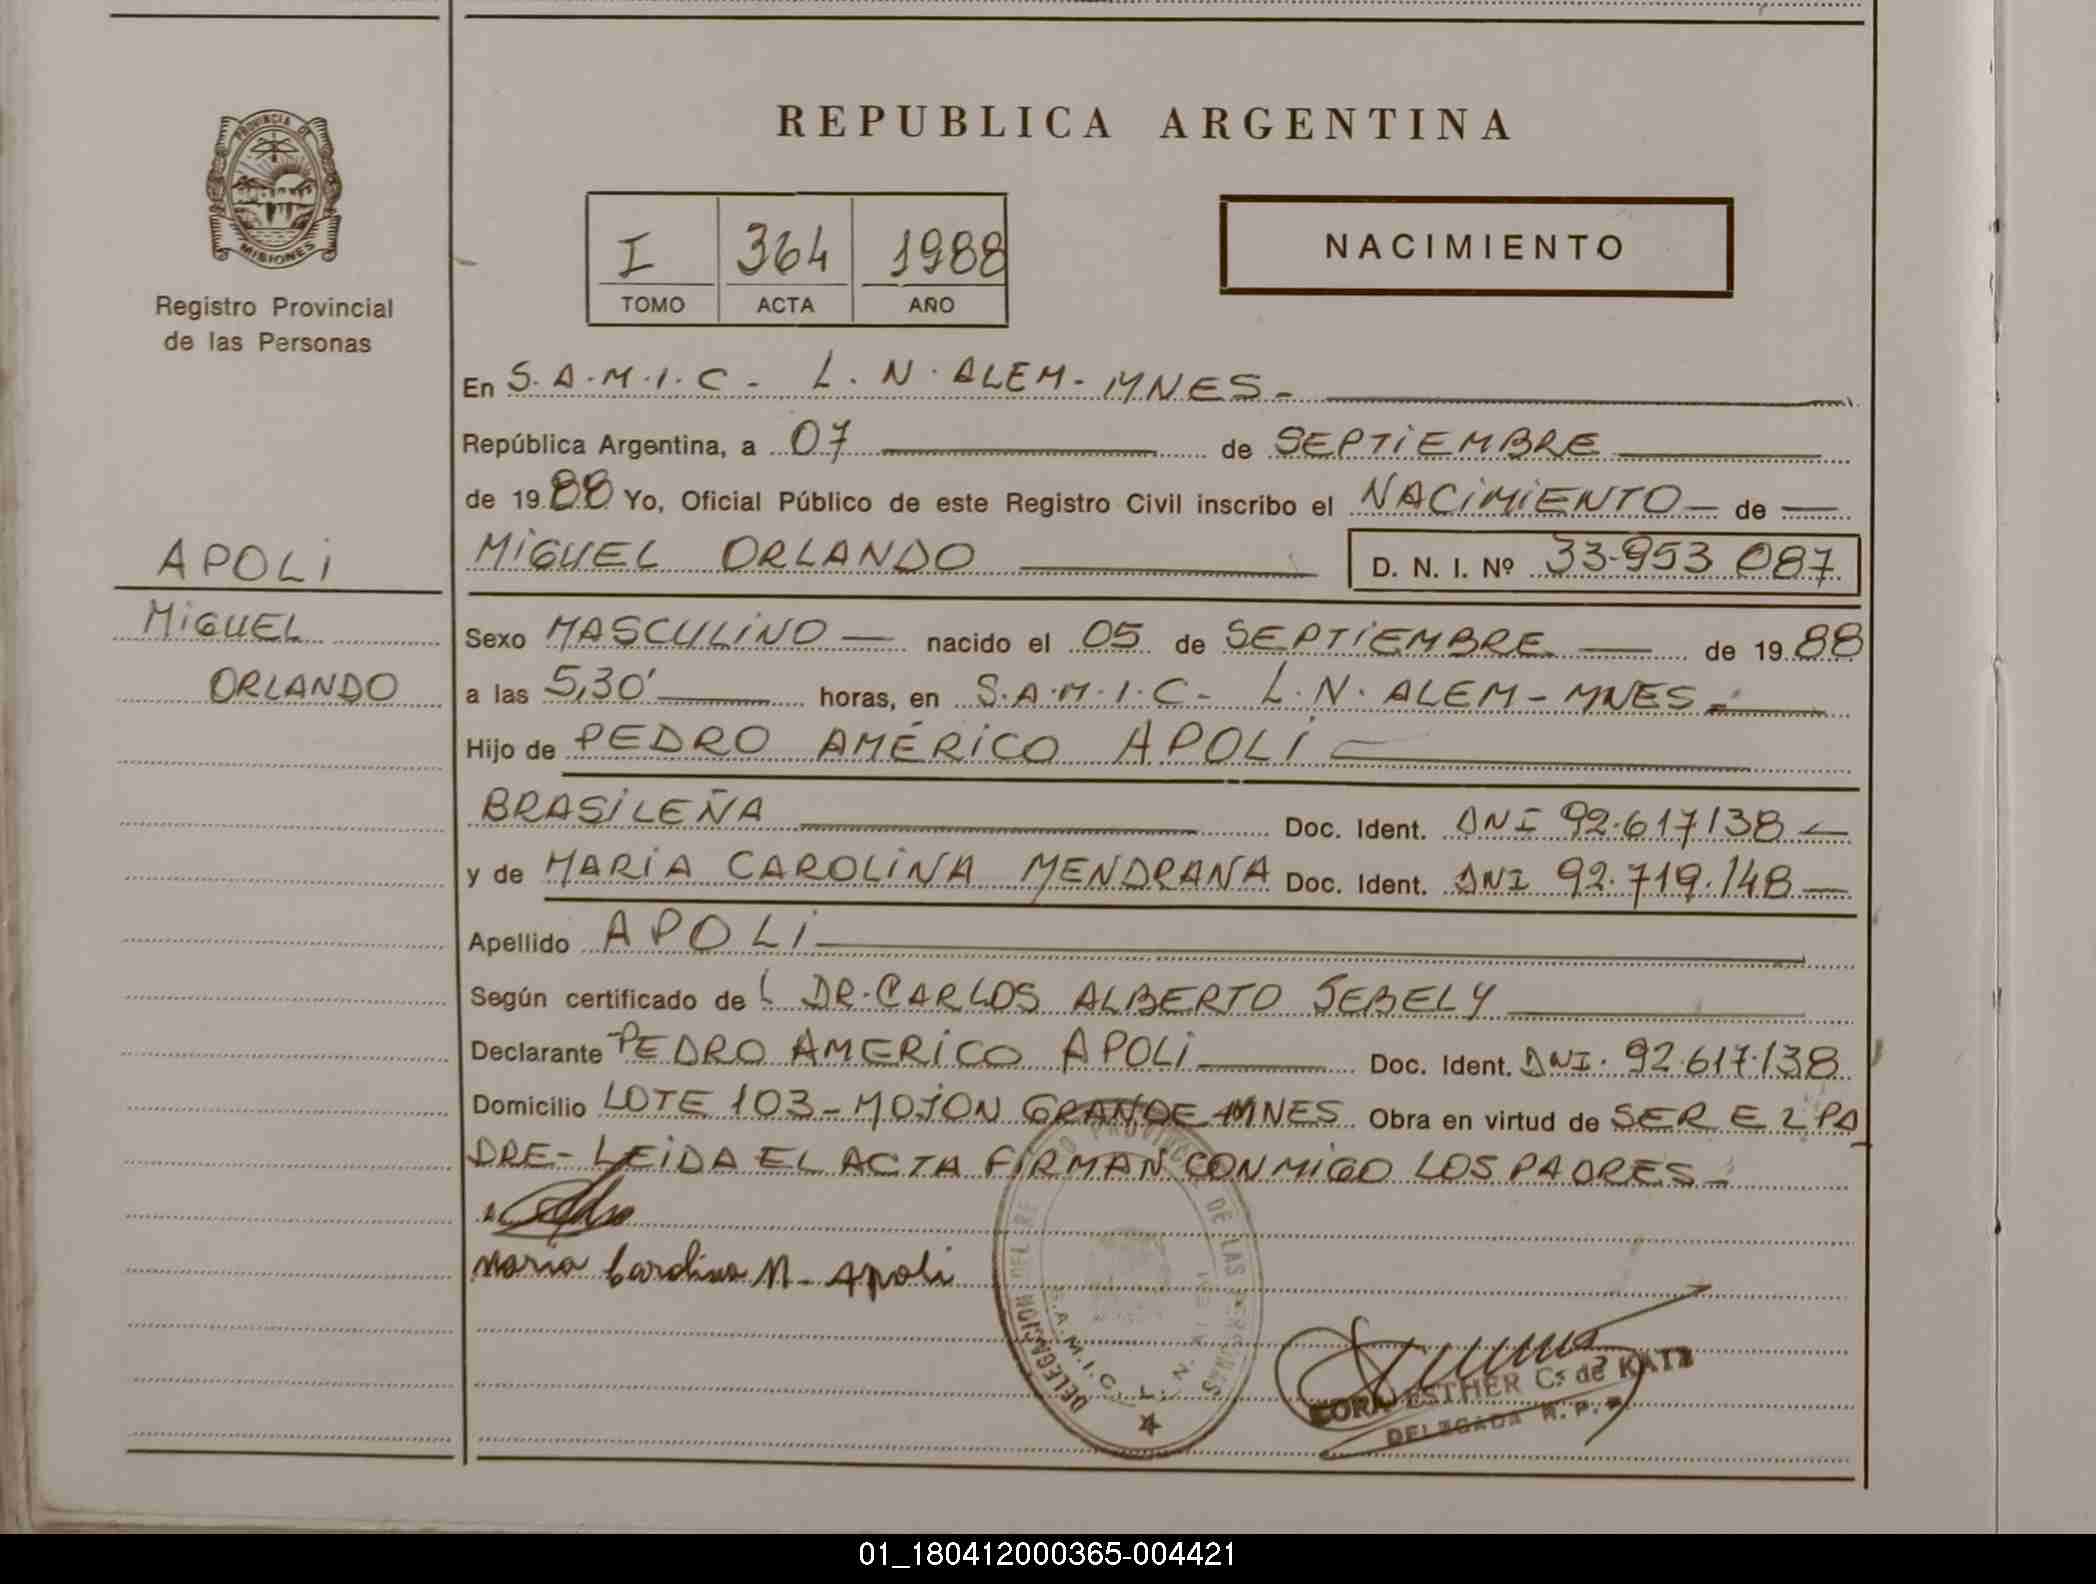 PROVINCIA DE
MISIONES
Registro Provincial
de las Personas
APOLI
MIGUEL
ORLANDO
REPUBLICA ARGENTINA
I 364 1988
TOMO ACTA AÑO
NACIMIENTO
En S.A.M.I.C - L.N. ALEM - MNES -
República Argentina, a 07 de SEPTIEMBRE
de 1988 Yo, Oficial Público de este Registro Civil inscribo el NACIMIENTO - de -
MIGUEL ORLANDO D. N. I. Nº 33.953 087
Sexo MASCULINO - nacido el 05 de SEPTIEMBRE - de 1988
a las 5,30' horas, en S.A.M.I.C - L.N. ALEM - MNES -
Hijo de PEDRO AMÉRICO APOLI
BRASILEÑA Doc. Ident. DNI 92.617138 -
y de MARIA CAROLINA MENDRANA Doc. Ident. DNI 92.719.148 -
Apellido APOLI
Según certificado de DR. CARLOS ALBERTO SEBELY
Declarante PEDRO AMERICO APOLI Doc. Ident. DNI. 92.617.138
Domicilio LOTE 103 - MOJON GRANDE - MNES Obra en virtud de SER EL PA
DRE - LEIDA EL ACTA FIRMAN CONMIGO LOS PADRES -
Maria Carolina M. Apoli
DELEGACION DEL REGISTRO PROVINCIAL DE LAS PERSONAS
S.A.M.I.C. L. N. ALEM
ESTHER C. de KATZ
DELEGADA R. P. P.
01_180412000365-004421